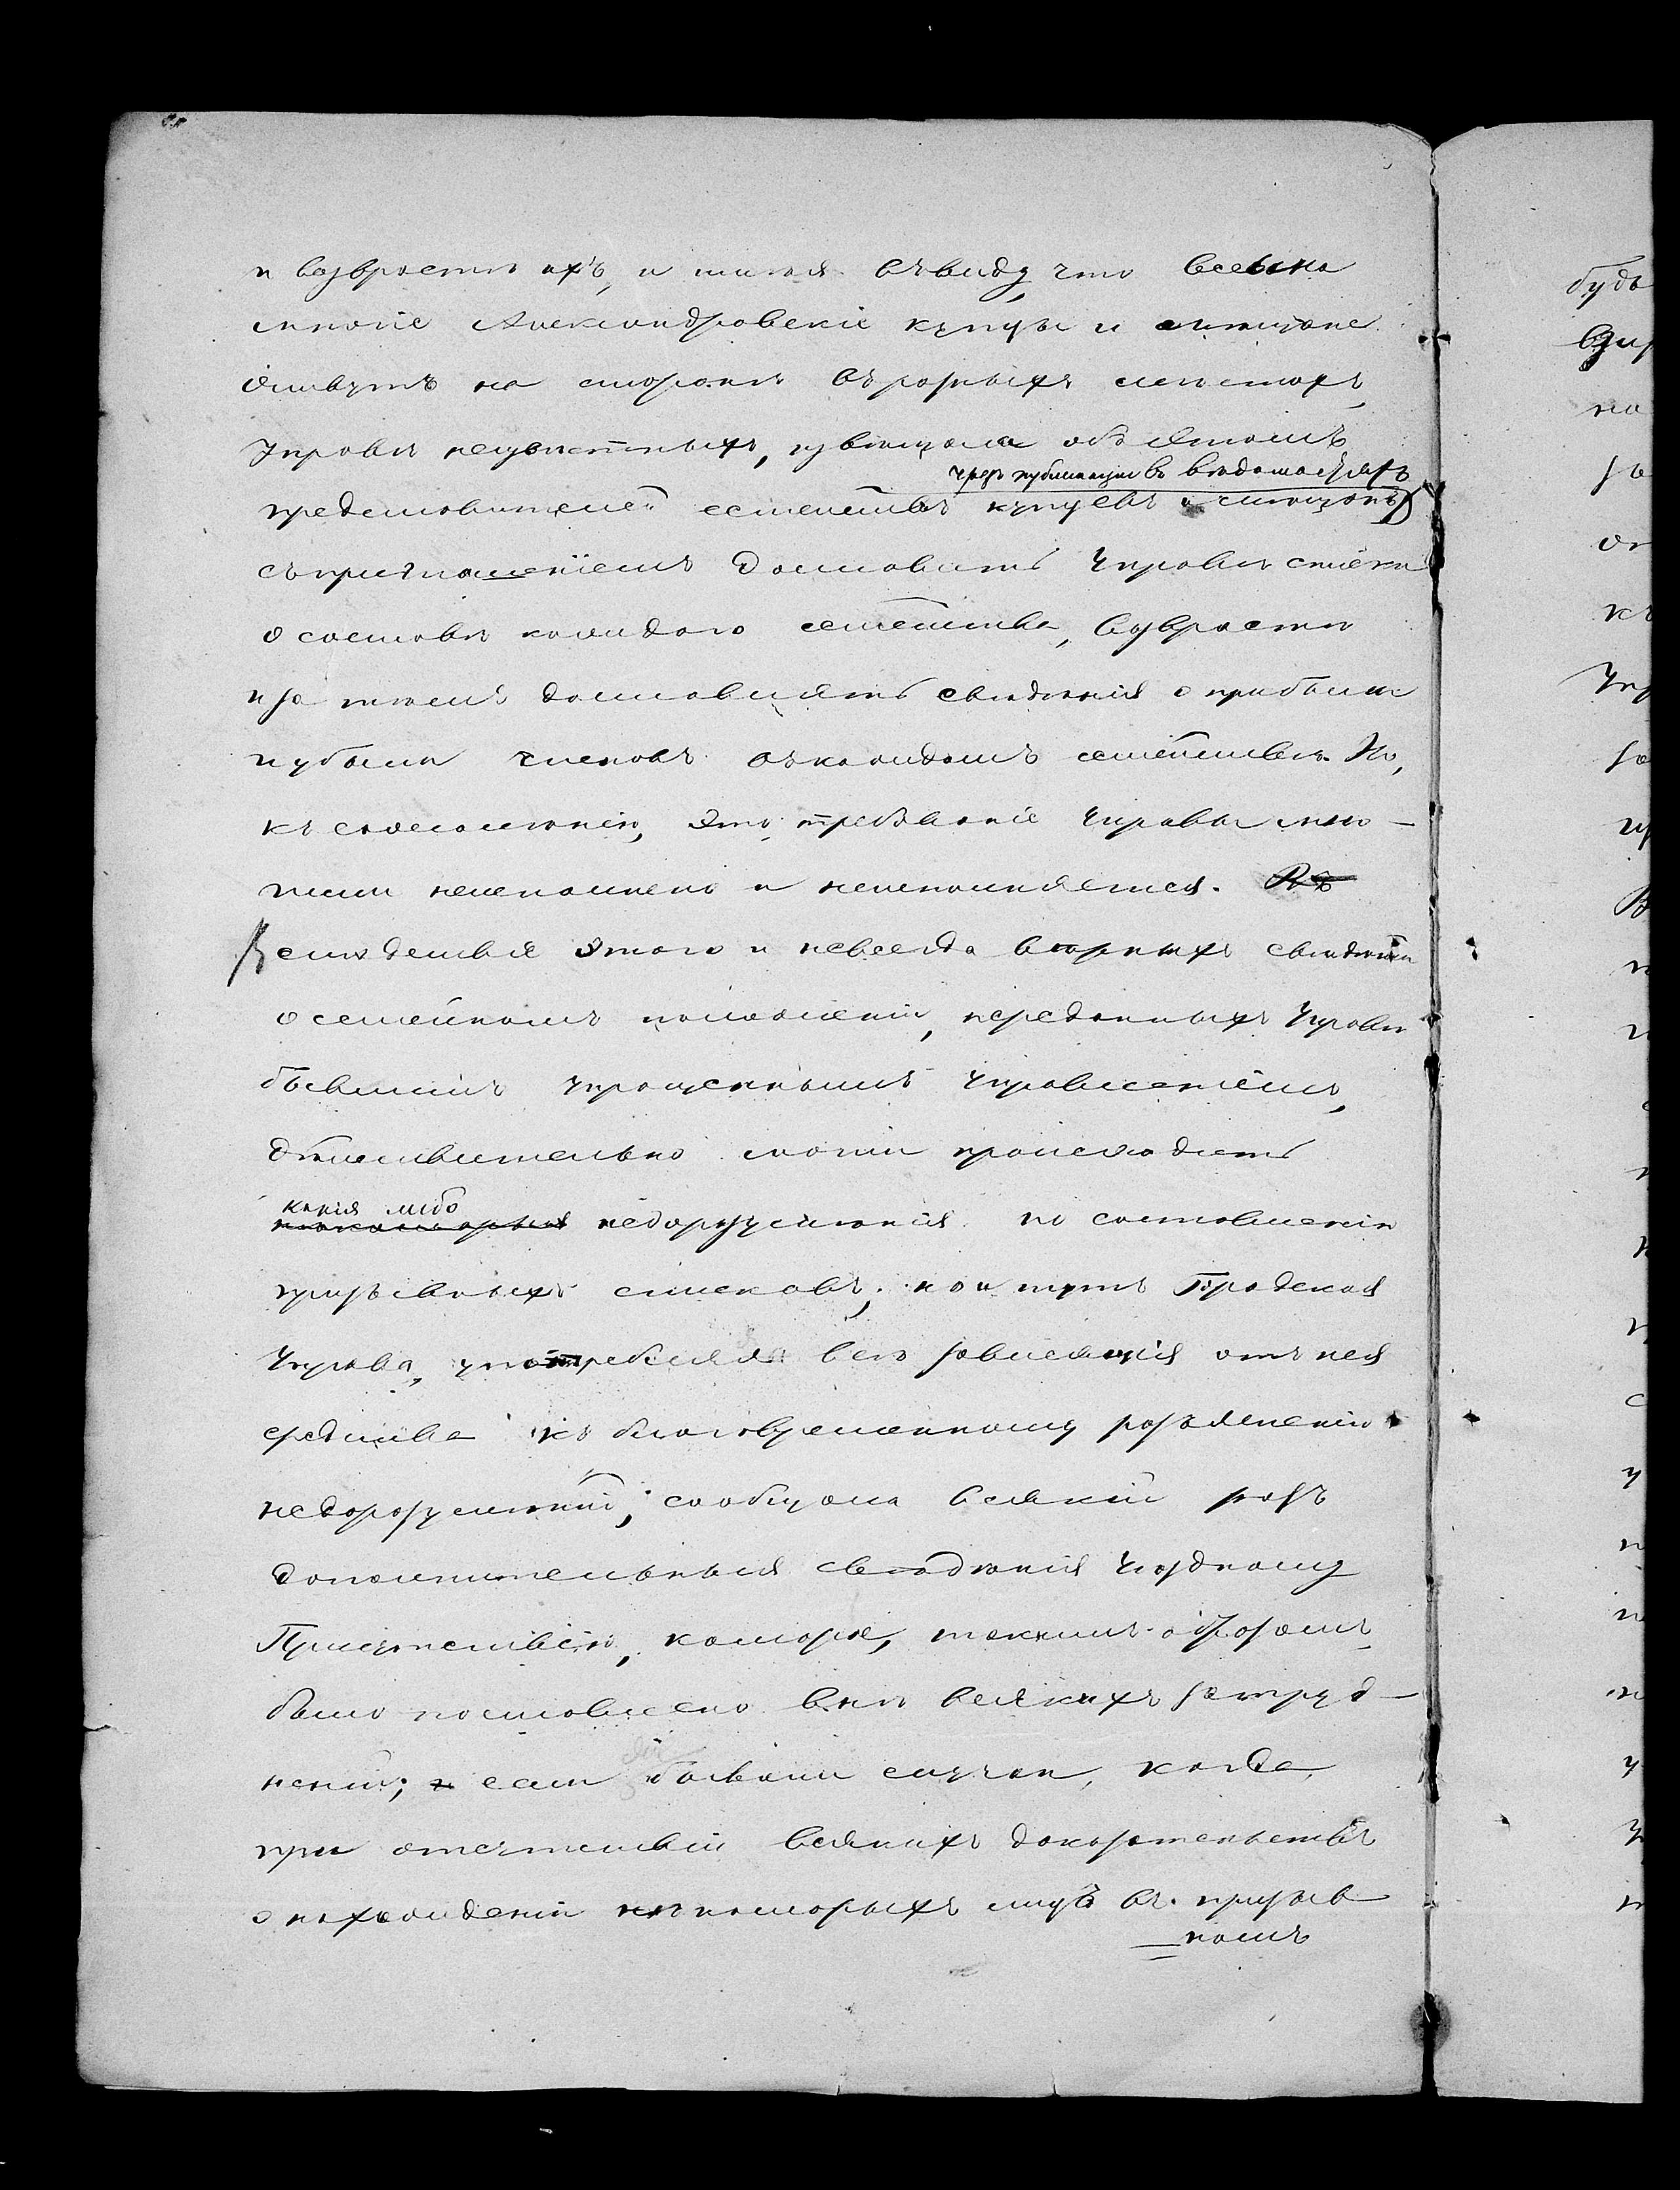 и возрастѣ ихъ, и имѣя въ виду, что весьма
многіе Александровскіе купцы и мѣщане
живутъ на сторонѣ въ разныхъ мѣстахъ,
Управѣ неизвѣстныхъ, извѣщала объ этомъ
чрезъ публикацію въ вѣдомостяхъ
представителей семействъ купцовъ и мѣщанъ
съ приглашеніемъ доставить Управѣ списки
о составѣ каждаго семейства, возрастѣ
и за тѣмъ доставлять свѣдѣнія о прибыли
и убыли членовъ въ каждомъ семействѣ. Но,
къ сожалѣнію, это требованіе Управы мно-
гими неисполнено и неисполняется.
Вслѣдствіе этого и невсегда вѣрныхъ свѣдѣній
о семейномъ положеніи, переданныхъ Управѣ
бывшимъ упрощеннымъ Управленіемъ,
дѣйствительно могли происходить
какія либо
нѣкоторыя недоразумѣнія по составленію
призывныхъ списковъ; но и тутъ Городская
Управа, употребляя всѣ зависящія отъ нея
средства къ благовременному разъясненію
недоразумѣній, сообщала всякій разъ
дополнительныя свѣдѣнія Уѣздному
Присутствію, которое, такимъ образомъ,
было поставлено внѣ всякихъ затруд-
неній; и если бывали случаи, когда,
при отсутствіи всякихъ доказательствъ
о нахожденіи нѣкоторыхъ лицъ въ призыв
номъ
будь
на
за
от
къ
Упр